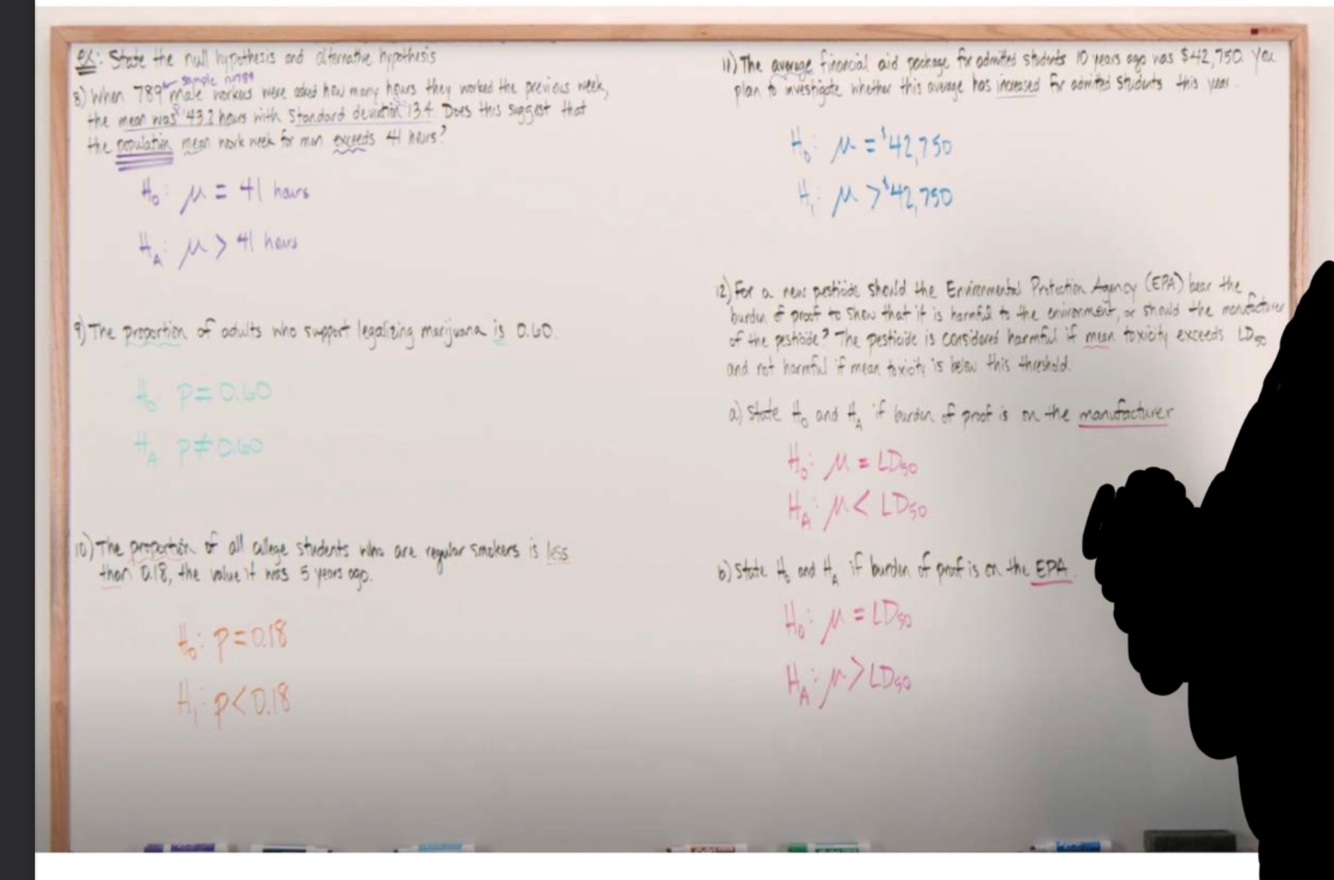 ex: State the null hypothesis and alternative hypothesis
sample n=789
8) When 789 male workers were asked how many hours they worked the previous week,
the mean was 43.2 hours with standard deviation 13.4. Does this suggest that
the population mean work week for men exceeds 41 hours?
H₀: μ = 41 hours
H_A: μ > 41 hours
9) The proportion of adults who support legalizing marijuana is 0.60.
H₀ p = 0.60
H_A p ≠ 0.60
10) The proportion of all college students who are regular smokers is less
than 0.18, the value it was 5 years ago.
H₀: p = 0.18
H₁: p < 0.18
11) The average financial aid package for admitted students 10 years ago was $42,750. You
plan to investigate whether this average has increased for admitted students this year.
H₀: μ = $42,750
H₁: μ > $42,750
12) For a new pesticide should the Environmental Protection Agency (EPA) bear the
burden of proof to show that it is harmful to the environment, or should the manufacturer
of the pesticide? The pesticide is considered harmful if mean toxicity exceeds LD₅₀
and not harmful if mean toxicity is below this threshold.
a) State H₀ and H_A if burden of proof is on the manufacturer
H₀: μ = LD₅₀
H_A: μ < LD₅₀
b) State H₀ and H_A if burden of proof is on the EPA.
H₀: μ = LD₅₀
H_A: μ > LD₅₀